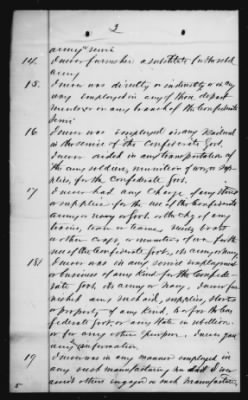 3
army or
14. I never furnished a substitute for the
army
15. I never was directly or indirectly in
any employed in any of those depart
ments or in any branch of the Confederate

16 I never was employed on any Railroad
in the service of the Confederate Govt.
I never aided in any transportation of
any soldiers, munition of war, or supp
lies, for the Confederate Govt.
17 I never had any charge of any stores
or supplies for the use of the Confederate
army or navy or Govt. or the chg of any
corn or
other crops, or munitions of war. for the
use of the Confederate Govt., its army or navy.
18 I never was in any service employment
or business of any kind for the Confede
rate Govt. its army or navy. I never fur
nished any such aid, supplies, stores
or property of any kind, to or for the Con
federate Govt. or any State in rebellion.
or for any other purpose. I never gave
any information.
19 I never was in any manner employed in
any such manufacturing no did I ever
assist others engaged in such manufacture,
5